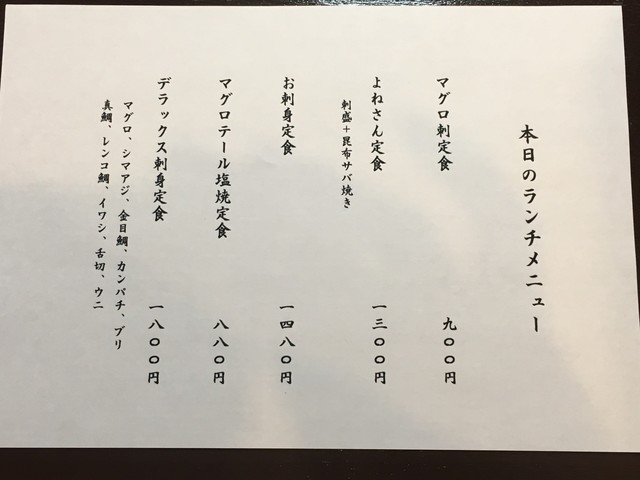 本日のランチメニュー
マグロ刺定食 九〇〇円
よねさん定食 一三〇〇円
刺盛+昆布サバ焼き
お刺身定食 一四八〇円
マグロテール塩焼定食 八八〇円
デラックス刺身定食 一八〇〇円
マグロ、シマアジ、金目鯛、カンパチ、ブリ
真鯛、レンコ鯛、イワシ、舌切、ウニ